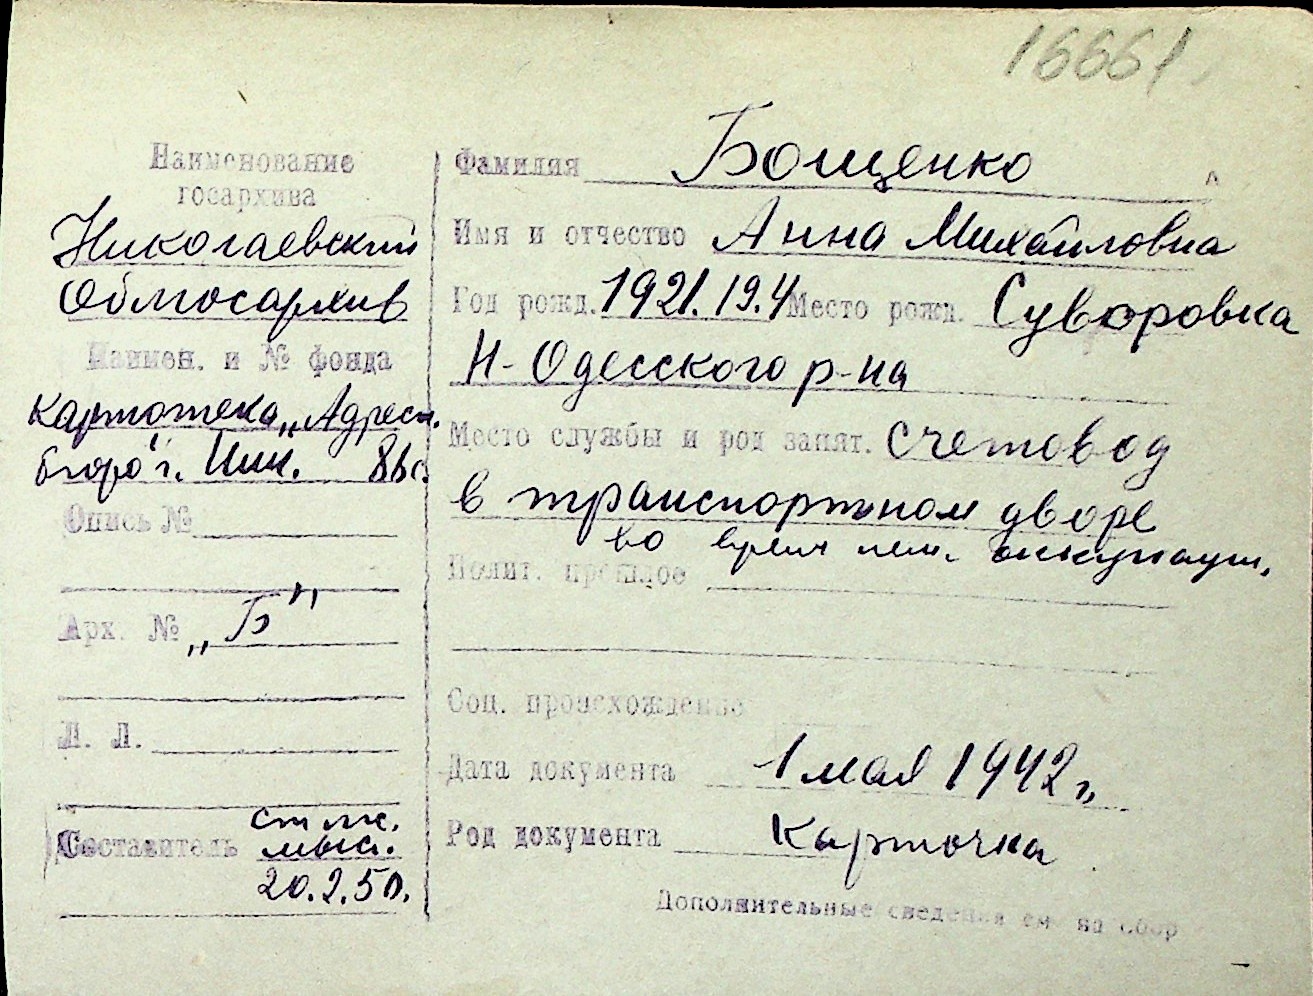 16661
Наименование
госархива
Николаевский
Облгосархив
Наимен. и № фонда
Картотека „Адресн.
бюро" г. Ник.
Опись №
Арх. № „Б"
Л. Л.
Составитель
20.2.50.
Фамилия Бощенко
Имя и отчество Анна Михайловна
Год рожд. 1921.19.4 Место рожд. Суворовка
Н-Одесского р-на
Место службы и род занят. Счетовод
в транспортном дворе
во время нем. оккупации.
Полит. прошлое
Соц. происхождение
Дата документа 1 мая 1942 г.
Род документа Карточка
Дополнительные сведения см на обор